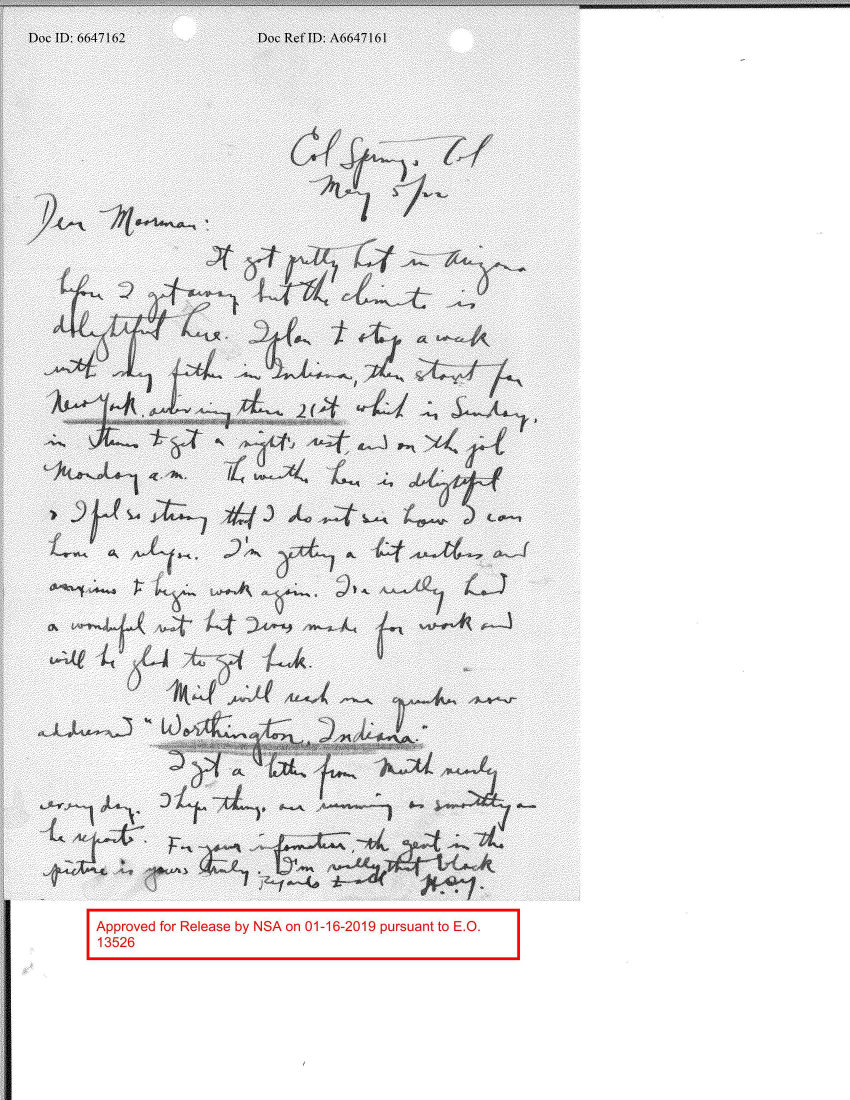 Doc ID: 6647162 Doc Ref ID: A6647161
Col Springs, Col
May 5/22
Dear Moorman:
It got pretty hot in Arizona
before I got away but the climate is
delightful here. I plan to stop a week
with my father in Indiana, then start for
New York, arriving there 21st which is Sunday,
in time to get a night's rest, and on the job
Monday a.m. The weather here is delightful
& I feel so strong that I do not see how I can
have a relapse. I'm getting a bit restless and
anxious to begin work again. I've really had
a wonderful rest but I was made for work and
will be glad to get back.
Mail will reach me quicker now
addressed "Worthington, Indiana."
I get a letter from Muth nearly
every day. I hope things are running as smoothly as
he reports. For your information, the gent in the
picture is yours truly. I'm really that black
Regards to all H.O.Y.
Approved for Release by NSA on 01-16-2019 pursuant to E.O.
13526